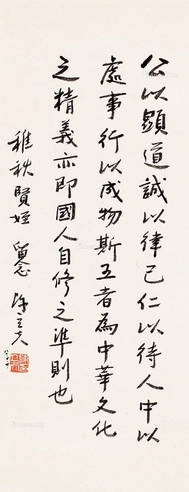 公以顯道誠以律己仁以待人中以
處事行以成物斯五者為中華文化
之精義亦即國人自修之準則也
稚秋賢姪 留念 陳立夫